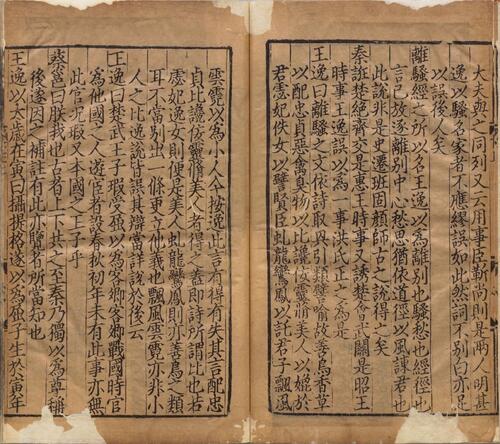 大夫與之同列又云用事臣靳尚則是兩人明甚
逸以騷名家者不應繆誤如此然詞不別白亦足
以誤後人矣
離騷經之所以名王逸以為離別也騷愁也經徑也
言己放逐離別中心愁思猶依道徑以風諫君也
此說非是史遷班固顏師古之說得之矣
秦誑楚絕齊交是惠王時事又誘楚會武關是昭王
時事王逸誤以為一事洪氏正之為是
王逸曰離騷之文依詩取興引類譬喻故善鳥香草
以配忠貞惡禽臭物以比讒佞靈脩美人以媲於
君宓妃佚女以譬賢臣虬龍鸞鳳以託君子飄風
雲霓以為小人今按逸此言有得有失其言配忠
貞比讒佞靈脩美人者得之蓋即詩所謂比也若
宓妃佚女則便是美人虬龍鸞鳳則亦善鳥之類
耳不當別出一條更立他義也飄風雲霓亦非小
人之比逸說皆誤其辯當詳說於後云
王逸曰楚武王子瑕受屈以為客卿客卿戰國時官
為他國之人遊宦者設春秋初年未有此事亦無
此官況瑕又本國之王子乎
蔡邕曰朕我也古者上下共之至秦乃獨以為尊稱
後遂因之補註有此亦覽者所當知也
王逸以太歲在寅曰攝提格遂以為屈子生於寅年